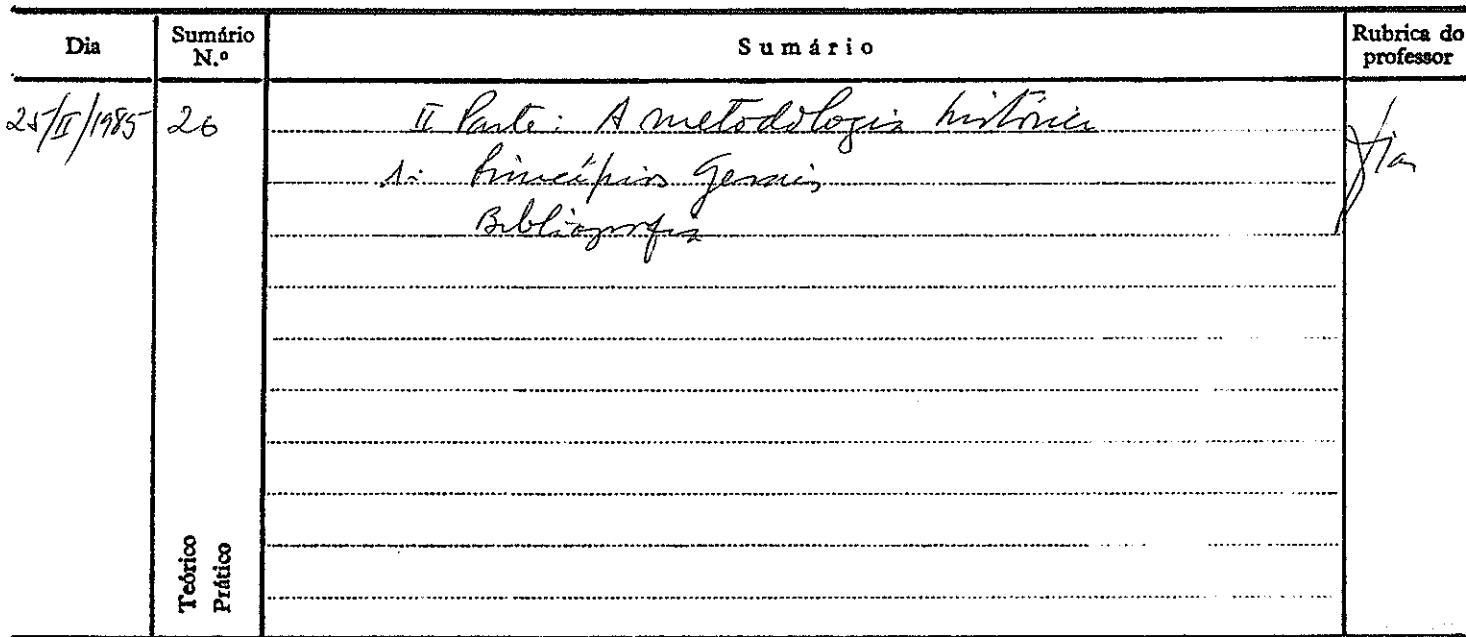 Dia Sumário N.º Sumário Rubrica do professor
25/II/1985 26 II Parte: A metodologia histórica
1: Princípios Gerais
Bibliografia
Teórico
Prático